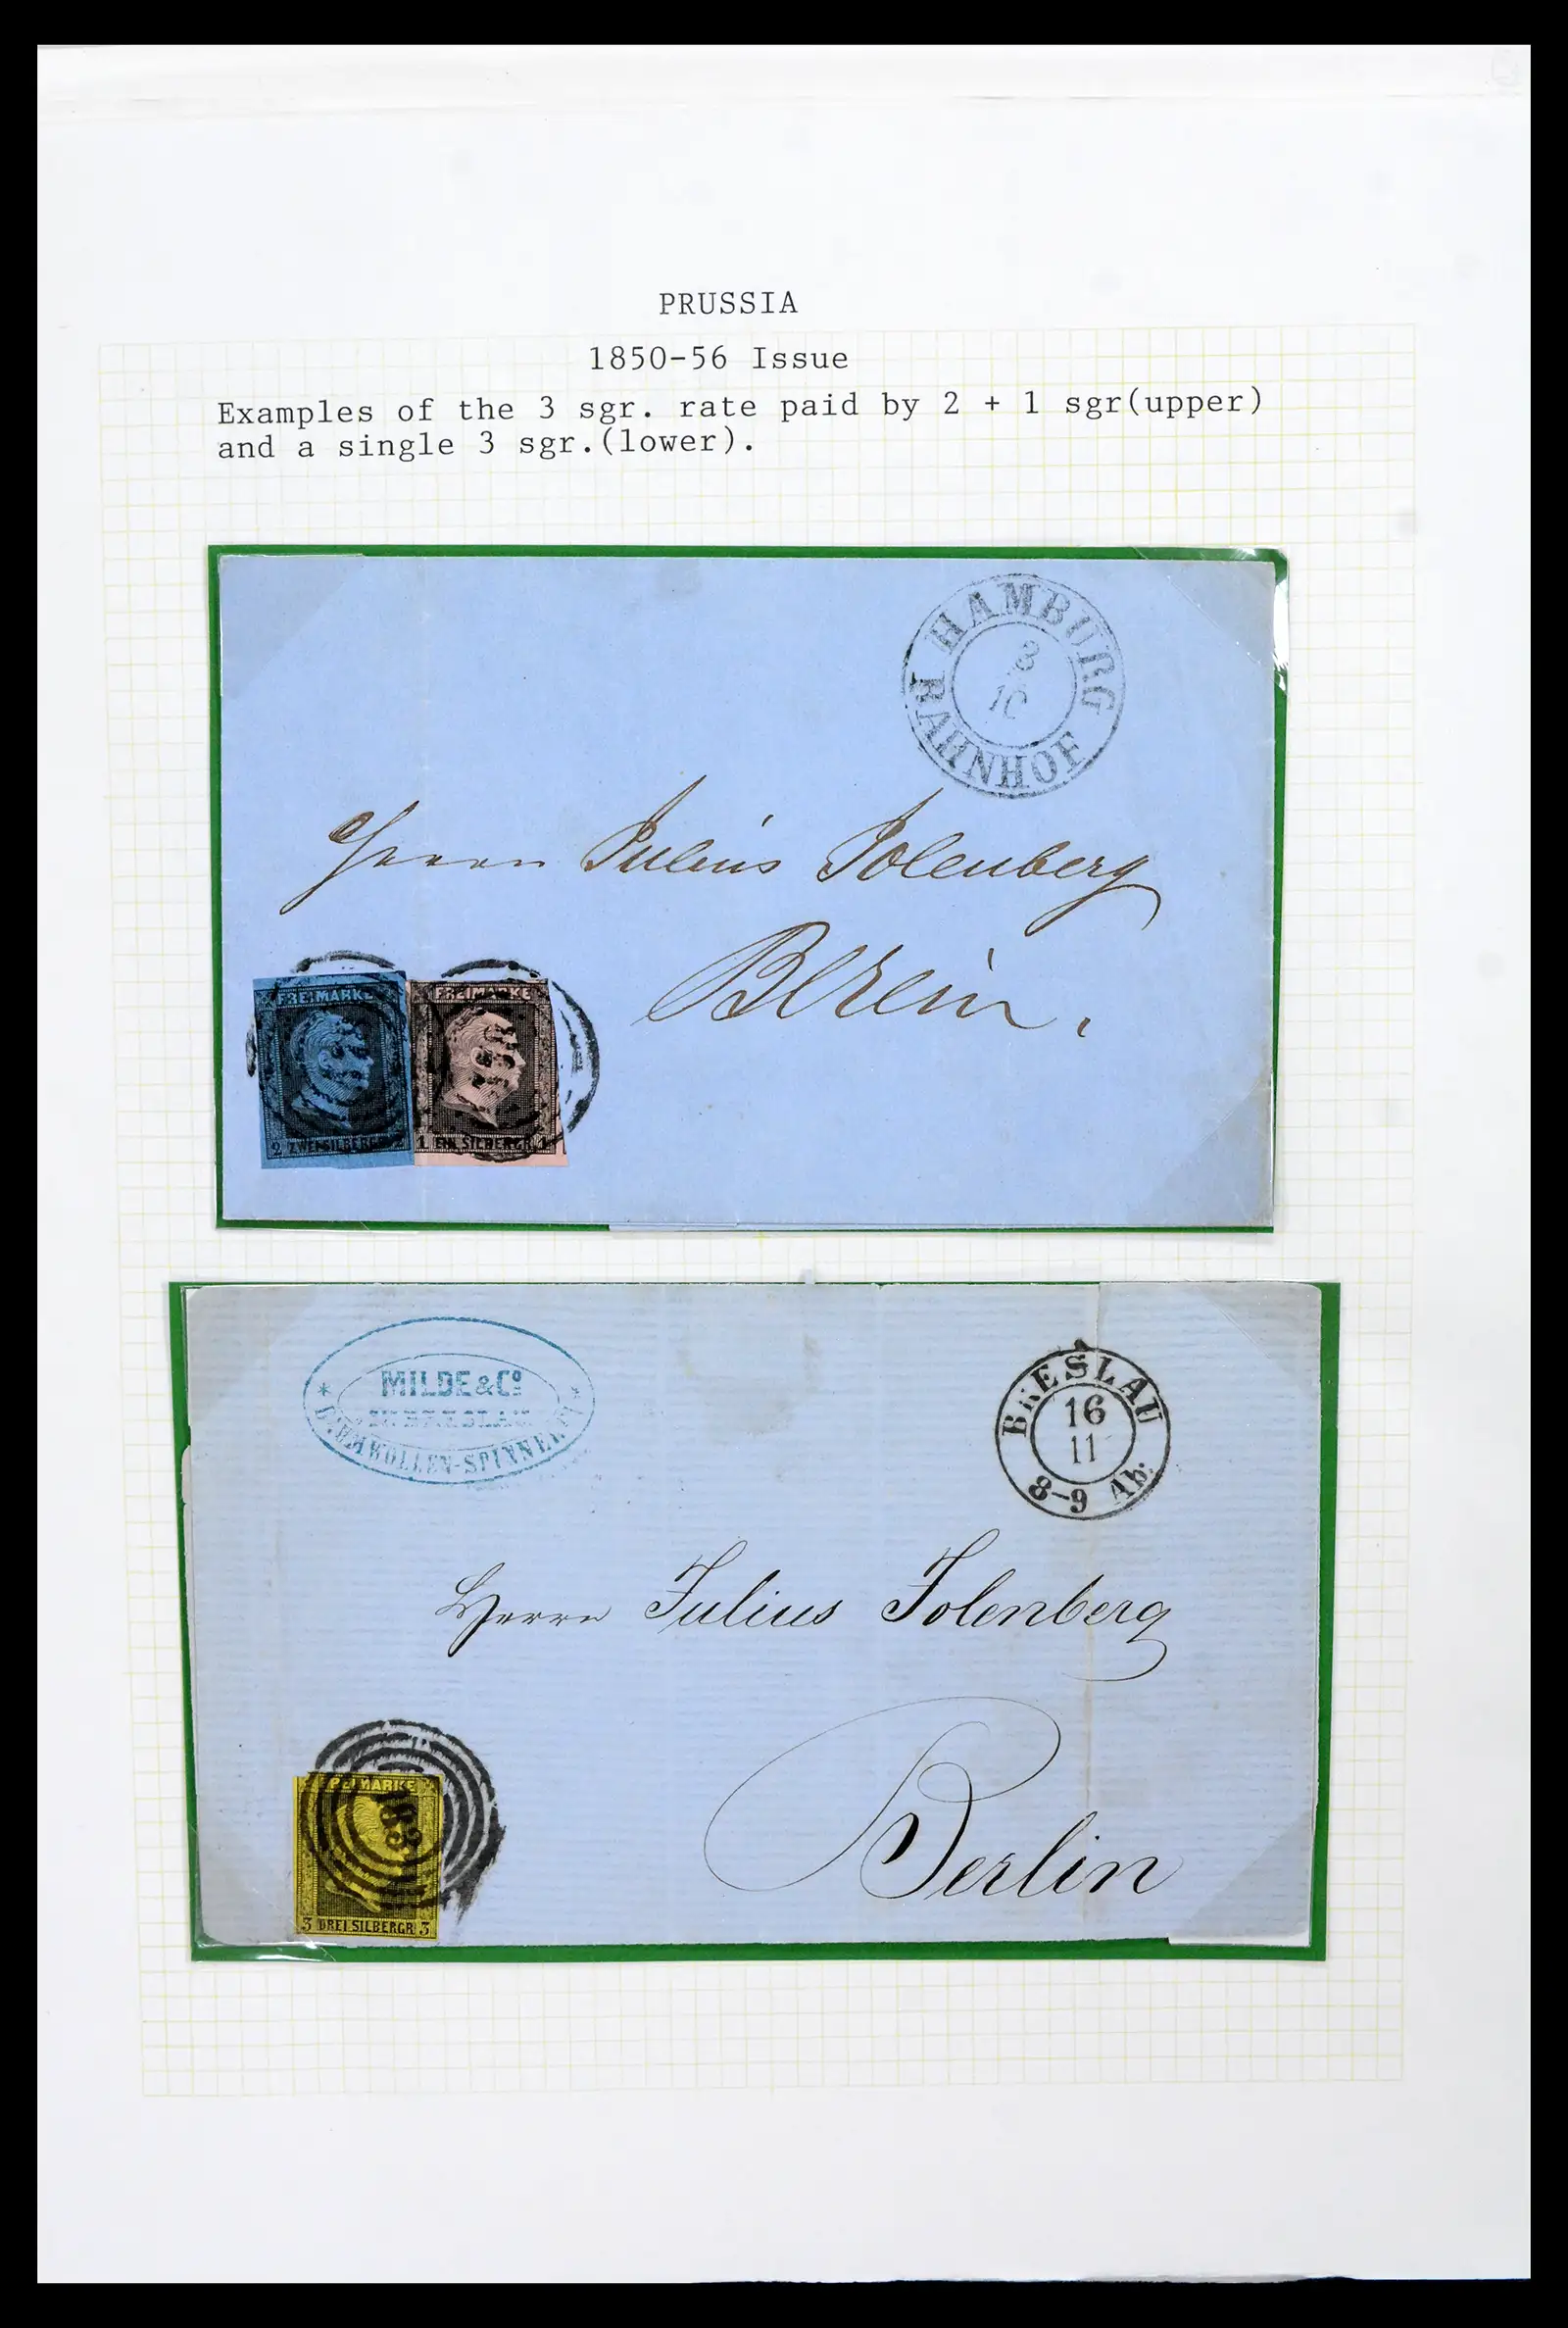 PRUSSIA
1850-56 Issue
Examples of the 3 sgr. rate paid by 2 + 1 sgr(upper)
and a single 3 sgr.(lower).
HAMBURG
8
10
BAHNHOF
Herrn Julius Jolenberg
Berlin.
FREIMARKE
2 ZWEI SILBERGR
FREIMARKE
1 EIN SILBERGR 1
MILDE & Co
IN BRESLAU
BAUMWOLLEN-SPINNEREI
BRESLAU
16
11
8-9 Ab.
Herrn Julius Jolenberg
Berlin
FREIMARKE
3 DREI SILBERGR 3